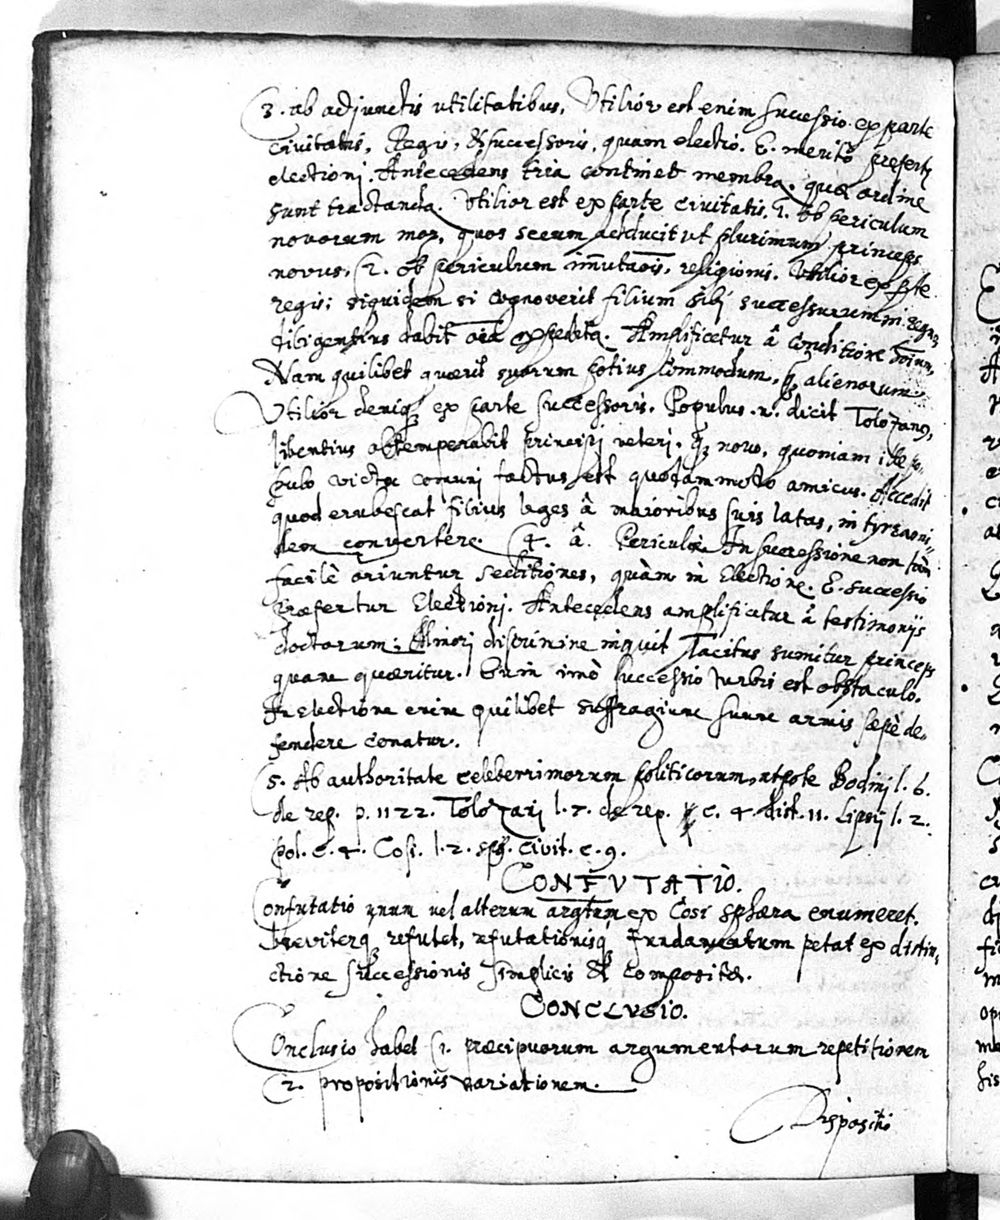 3. ab adjunctis utilitatibus, Utilior est enim successio ex parte
civitatis, Regis, & successoris, quam electio. E. meritò præfert
electioni. Antecedens tria continet membra, quæ ordine
sunt tractanda. Utilior est ex parte civitatis, 1. ob periculum
novorum mor, quos secum adducit ut plurimum princeps
novus. 2. ob periculum im̄utaōis, religionis. Utilior ex pte
regis; siquidem si cognoverit filium sibi successurum in regno
diligentius dabit expedita. Amplificetur â conditione
Nam quilibet quærit suorum potius commodum, q̃ alienorum
Utilior deniq, ex parte successoris. Populus .n. dicit Tolozanꝰ,
libentius obtemperabit principi veteri, q̃ novo, quoniam ille po-
pulo victæ comuni factus est quodammodo amicus. Accedit
quod erubescat filius leges â maioribus suis latas, in tyranni-
dem convertere. 4. â. Periculis In successione non tàm
facilè oriuntur seditiones, quàm in Electione. E. successio
præfertur Electioni. Antecedens amplificatur â testimonijs
doctorum; Minori discrimine inquit Tacitus sumitur princeps
quam quæritur. Enim imò successio turbis est obstaculo.
In electione enim quilibet suffragium suum armis sæpè de-
fendere conatur.
5. Ab authoritate celeberrimorum politicorum, utpote Bodini l. 6.
de rep. p. 1122. Tolozani l. 7. de rep. c. 4. dist. 11. Lipsij l. 2.
pol. c. 4. Cosi. l. 2. sph. civit. c. 9.
CONFUTATIO.
Confutatio unum vel alterum argtum ex Cosi sphæra enumeret.
Breviterq refutet, refutationisq fundamentum petat ex distin-
ctione successionis simplicis & compositæ.
CONCLUSIO.
Conclusio habet 1. præcipuorum argumentorum repetitionem
2. propositionis variationem.
Dispositio